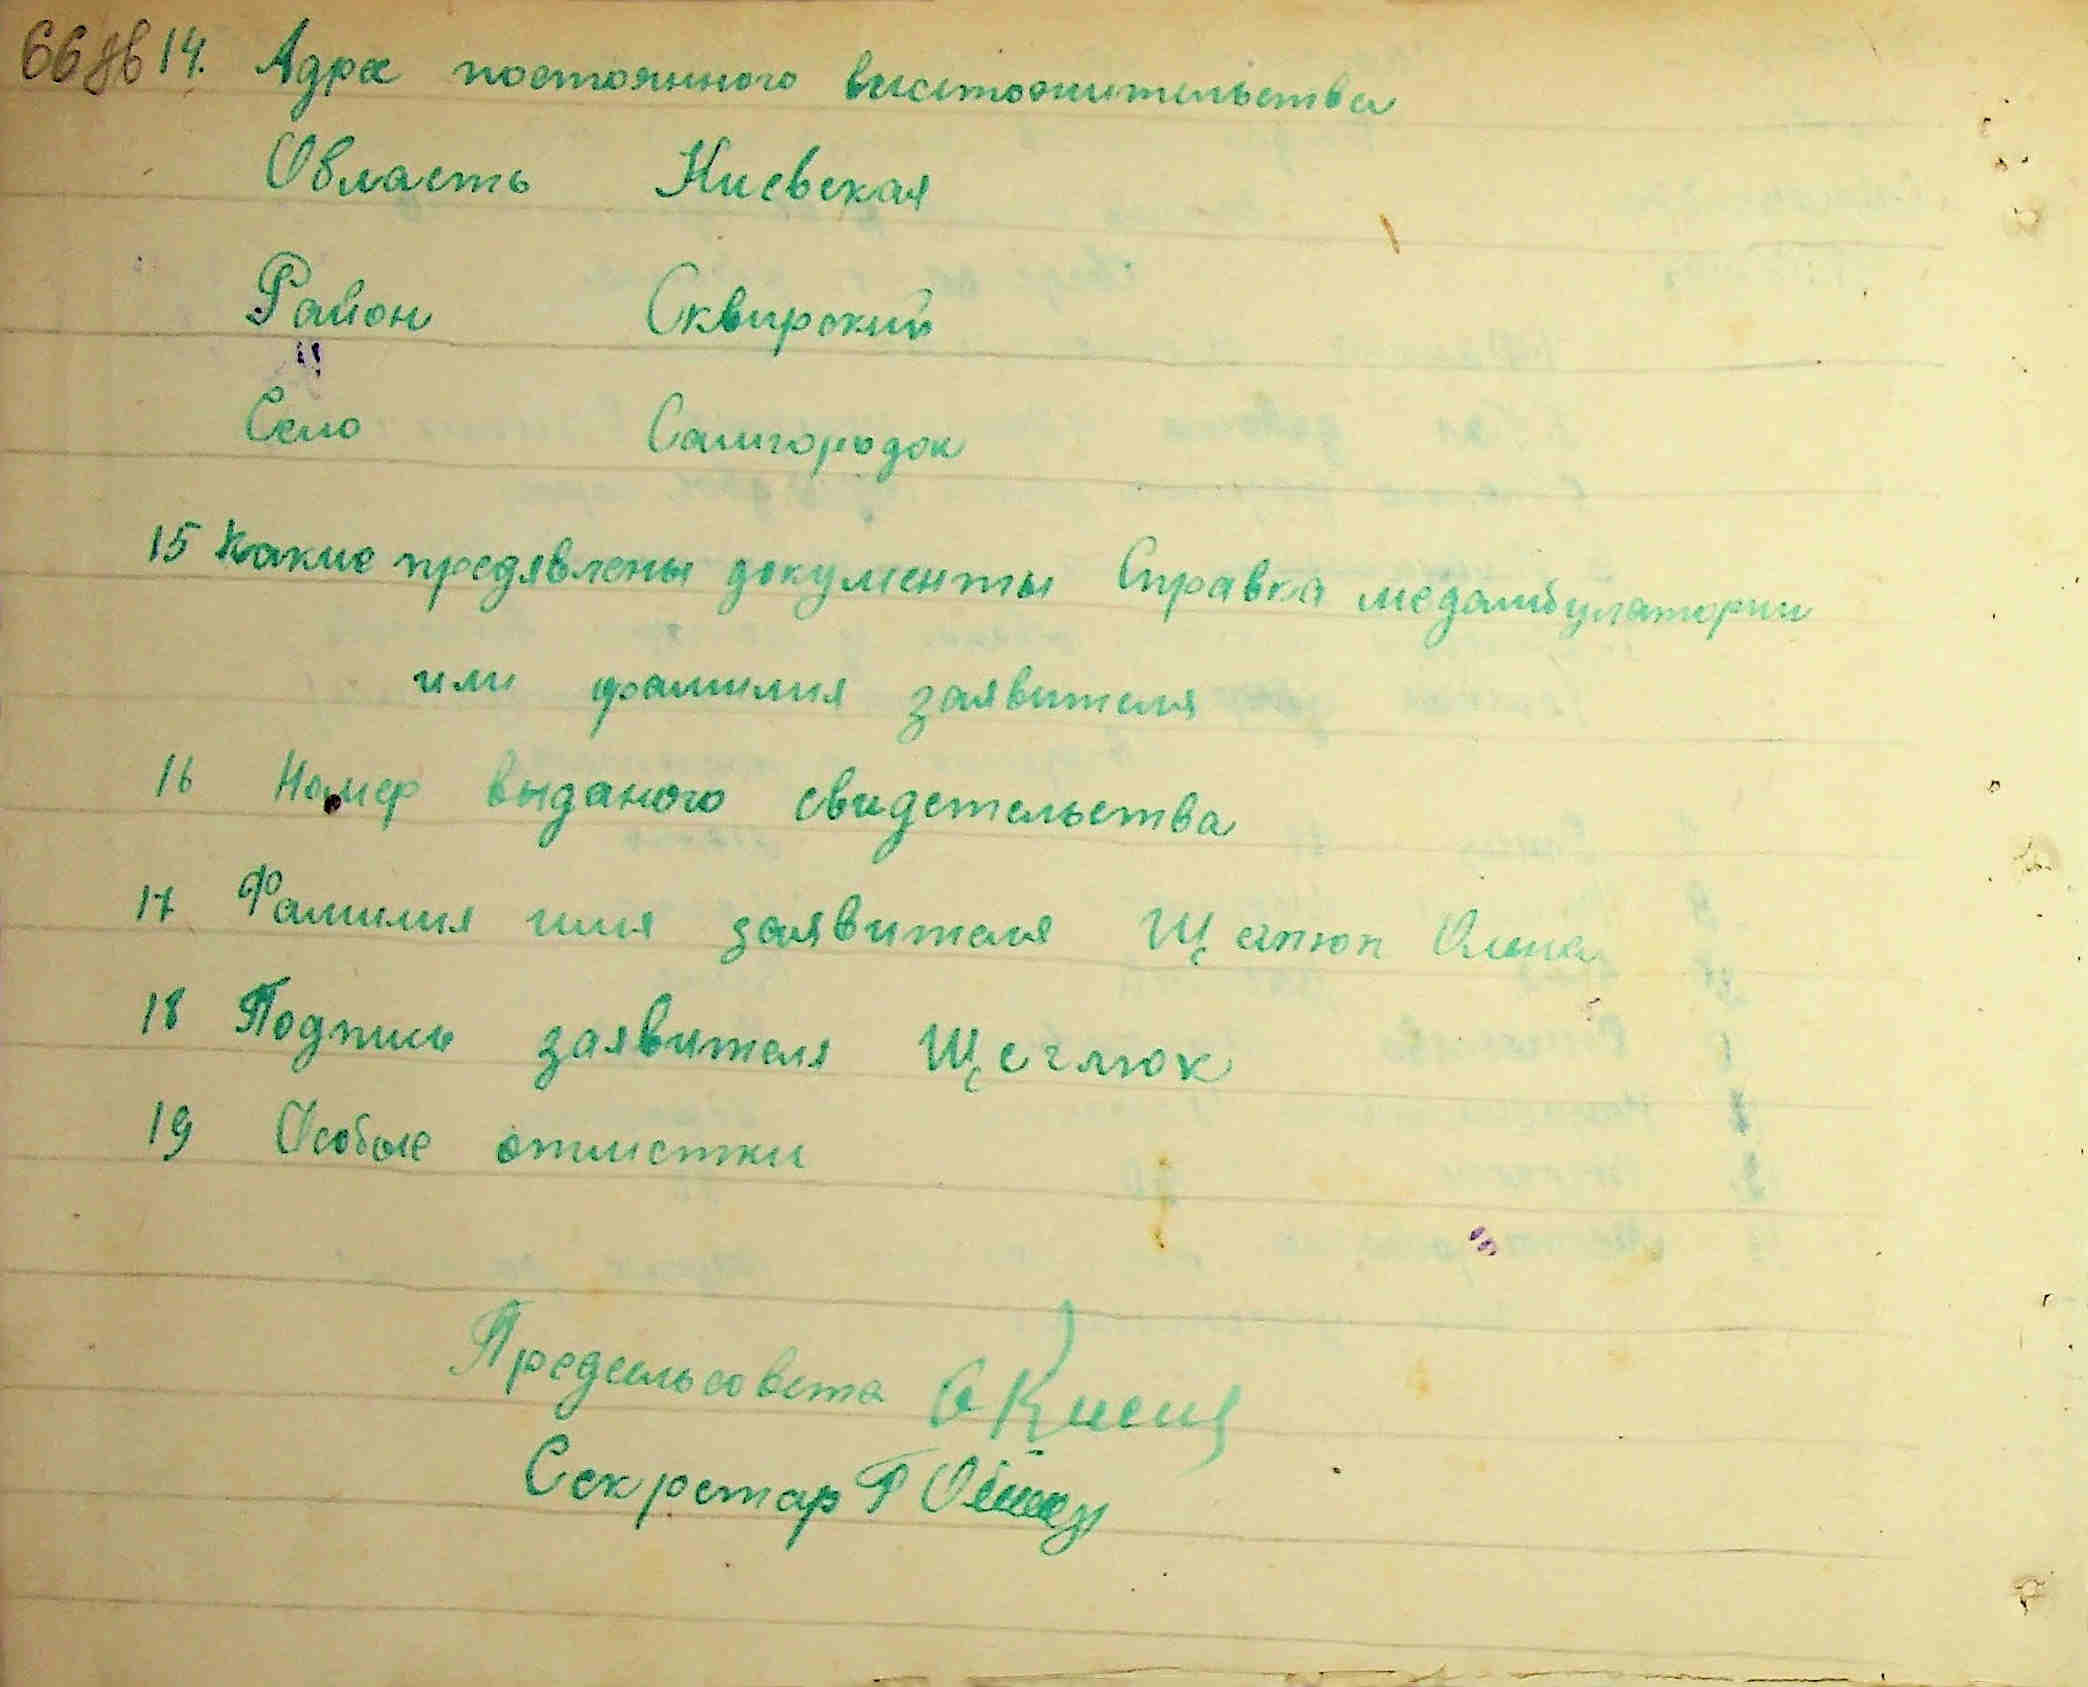 66 зв
14. Адрес постоянного виместожительства
Область Киевская
Район Сквирский
Село Самгородок
15 Какие предявлены документы Справка медамбулатории
или фамилия заявителя
16 Номер выданого свидетельства
17 Фамилия имя заявителя Олена
18 Подпись заявителя Щеглюк
19 Особые отметки
Предсельсовета
Секретар